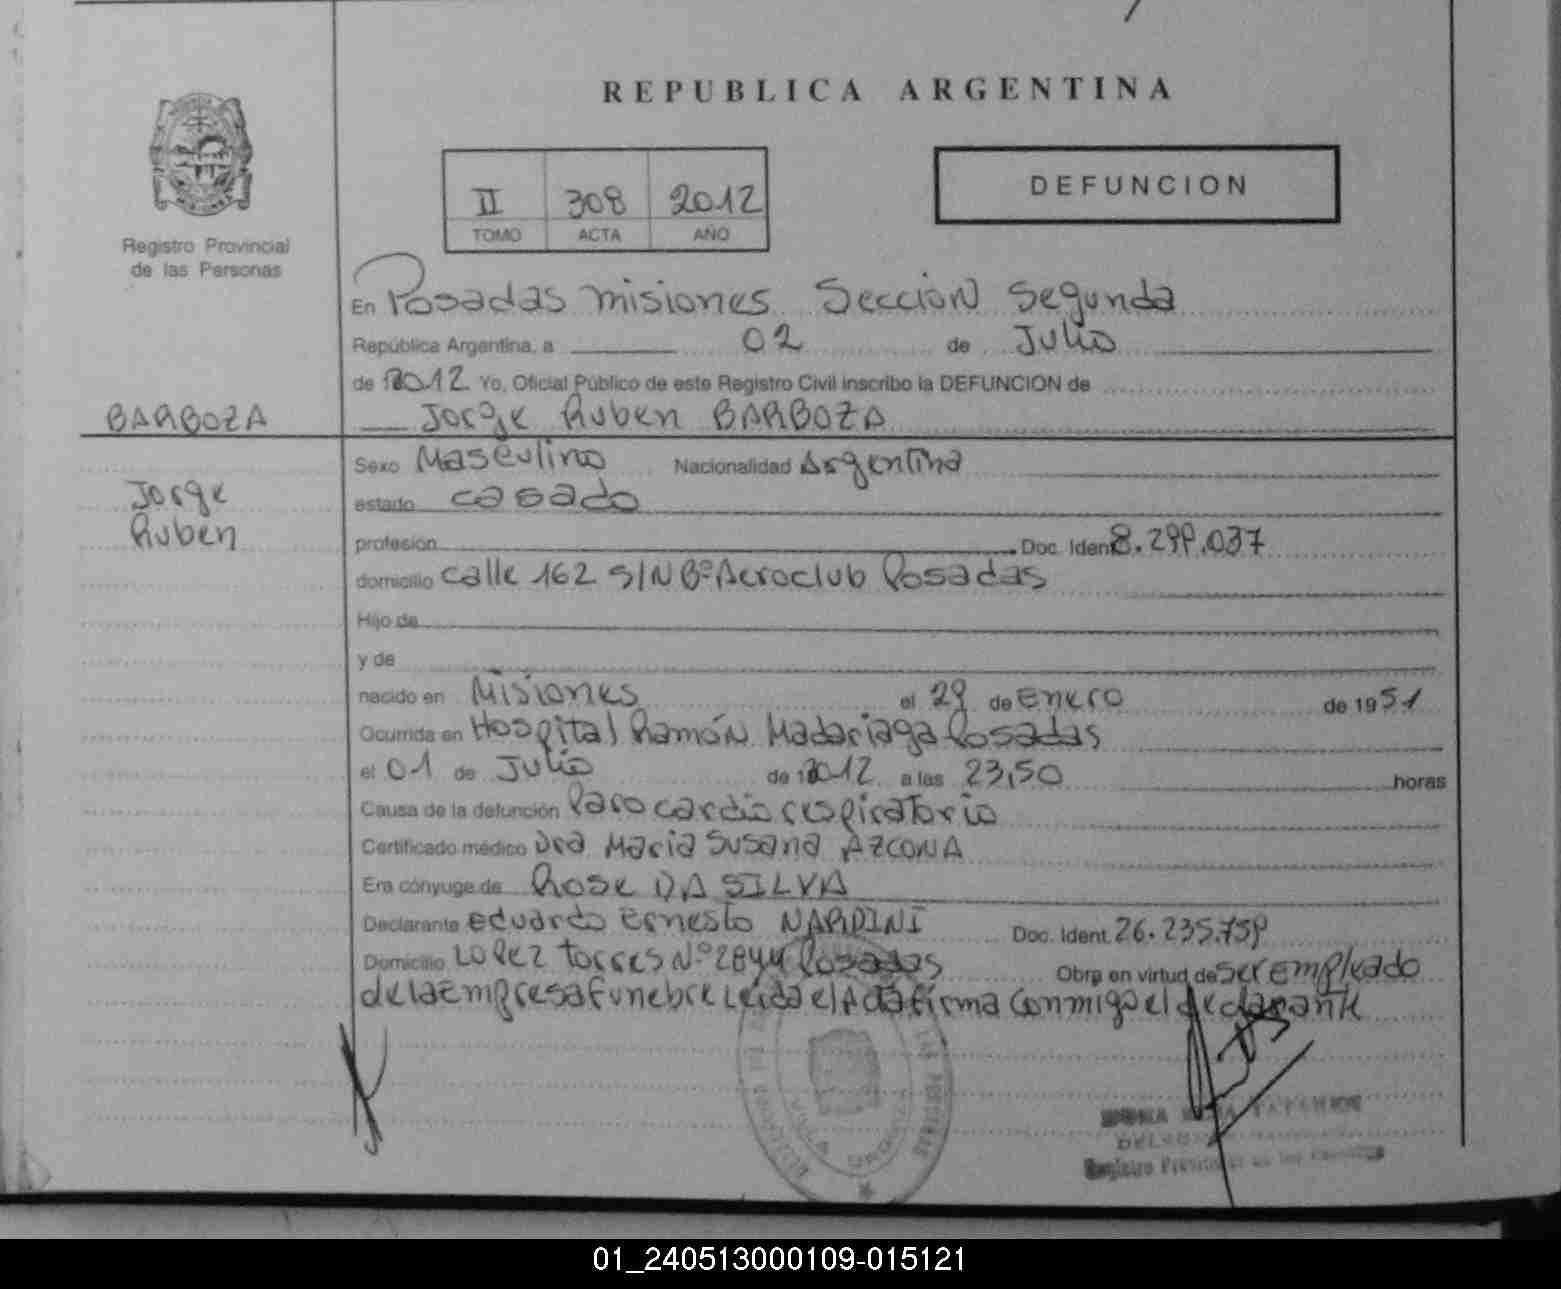 REPUBLICA ARGENTINA
DEFUNCION
II 308 2012
TOMO ACTA AÑO
Registro Provincial
de las Personas
En Posadas Misiones Seccion Segunda
República Argentina, a 02 de Julio
de 2012 Yo, Oficial Público de este Registro Civil inscribo la DEFUNCION de
BARBOZA
Jorge Ruben BARBOZA
Jorge
Ruben
Sexo Masculino Nacionalidad Argentina
estado casado
profesión Doc. Ident. 8.299.037
domicilio calle 162 S/N Bº Aeroclub Posadas
Hijo de
y de
nacido en Misiones el 29 de Enero de 1951
Ocurrida en Hospital Ramón Madariaga Posadas
el 01 de Julio de 2012 a las 23,50 horas
Causa de la defunción Paro cardio respiratorio
Certificado médico Dra Maria Susana AZCONA
Era cónyuge de Rose DA SILVA
Declarante Eduardo Ernesto NARDINI Doc. Ident. 26.235.759
Domicilio Lopez Torres Nº 2844 Posadas Obra en virtud de ser empleado
de la Empresa Funebre Leida el Acta firma conmigo el declarante
VILLA URQUIZA
LAS PERSONAS
01_240513000109-015121